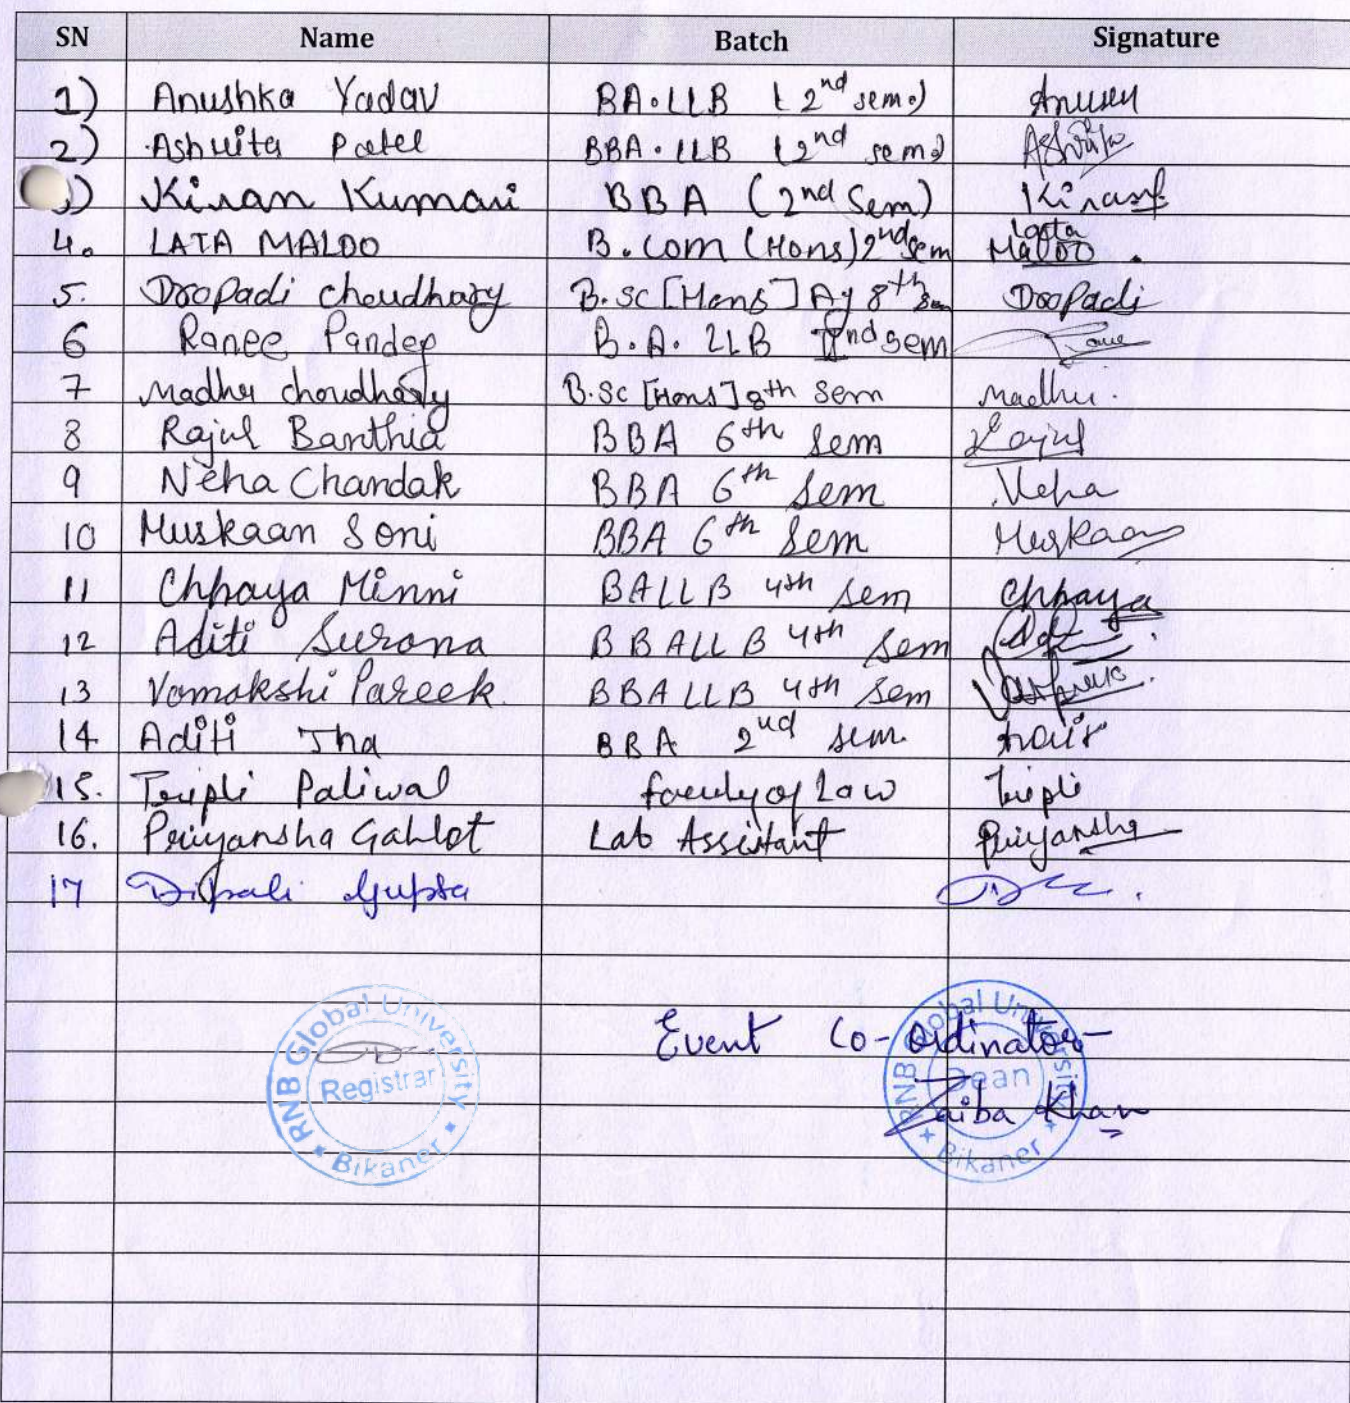 SN Name Batch Signature
1) Anushka Yadav BA.LLB (2nd sem.) Anush
2) Ashvita Patel BBA.LLB (2nd sem) Ashvita
3) Kiran Kumari BBA (2nd Sem) Kiran
4. LATA MALOO B.Com (Hons) 2nd sem Lata Maloo.
5. Droopadi choudhary B.Sc [Hons] Ag 8th Sem Droopadi
6 Ranee Pandey B.A. LLB IInd sem
7 Madhu choudhary B.Sc [Hons] 8th Sem Madhu.
8 Rajul Banthia BBA 6th Sem Rajul
9 Neha Chandak BBA 6th Sem Neha
10 Muskaan Soni BBA 6th Sem Muskaan
11 Chhaya Minni BALLB 4th Sem Chhaya
12 Aditi Surana BBALLB 4th Sem
13 Vamakshi Pareek BBALLB 4th Sem
14 Aditi Jha BBA 2nd sem. Aditi
15. Tripti Paliwal faculty of Law Tripti
16. Priyansha Gahlot Lab Assistant Priyansha
17 Dipali Gupta
Event Co-ordinator
Zaiba Khan
RNB Global University
Registrar
Bikaner
RNB Global University
Dean
Bikaner